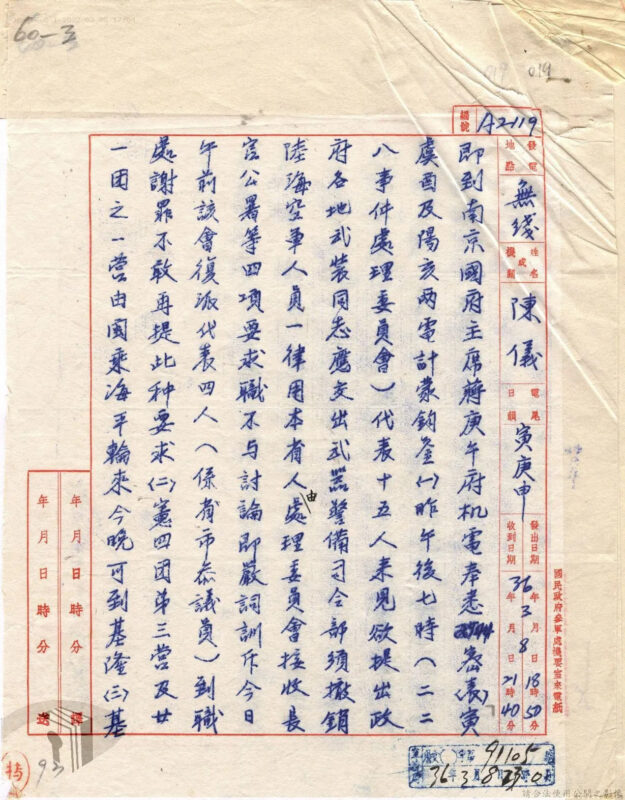 60-3
019
編號 A2119
發電地點 無綫
姓名或機關 陳儀
電尾日韻 寅庚申
發出日期 36年3月8日18時50分
收到日期 21時40分
國民政府參軍處機要室來電紙
即到南京國府主席蔣庚午府机電奉悉密(表)寅
虞酉及陽亥兩電計蒙鈞鉴(一)昨午後七時(二二
八事件處理委員會)代表十五人来見欲提出政
府各地武裝同志應交出武器警備司令部須撤銷
陸海空軍人員一律用本省人由處理委員會接收長
官公署等四項要求職不与討論即嚴詞訓斥今日
午前該會復派代表四人(係省市参議員)到職
處謝罪不敢再提此种要求(二)憲四团第三營及廿
一团之一營由閩乘海平輪来今晚可到基隆(三)基
年月日時分譯
年月日時分送
特
93
91105
36.3.8
請合法使用公開之影像